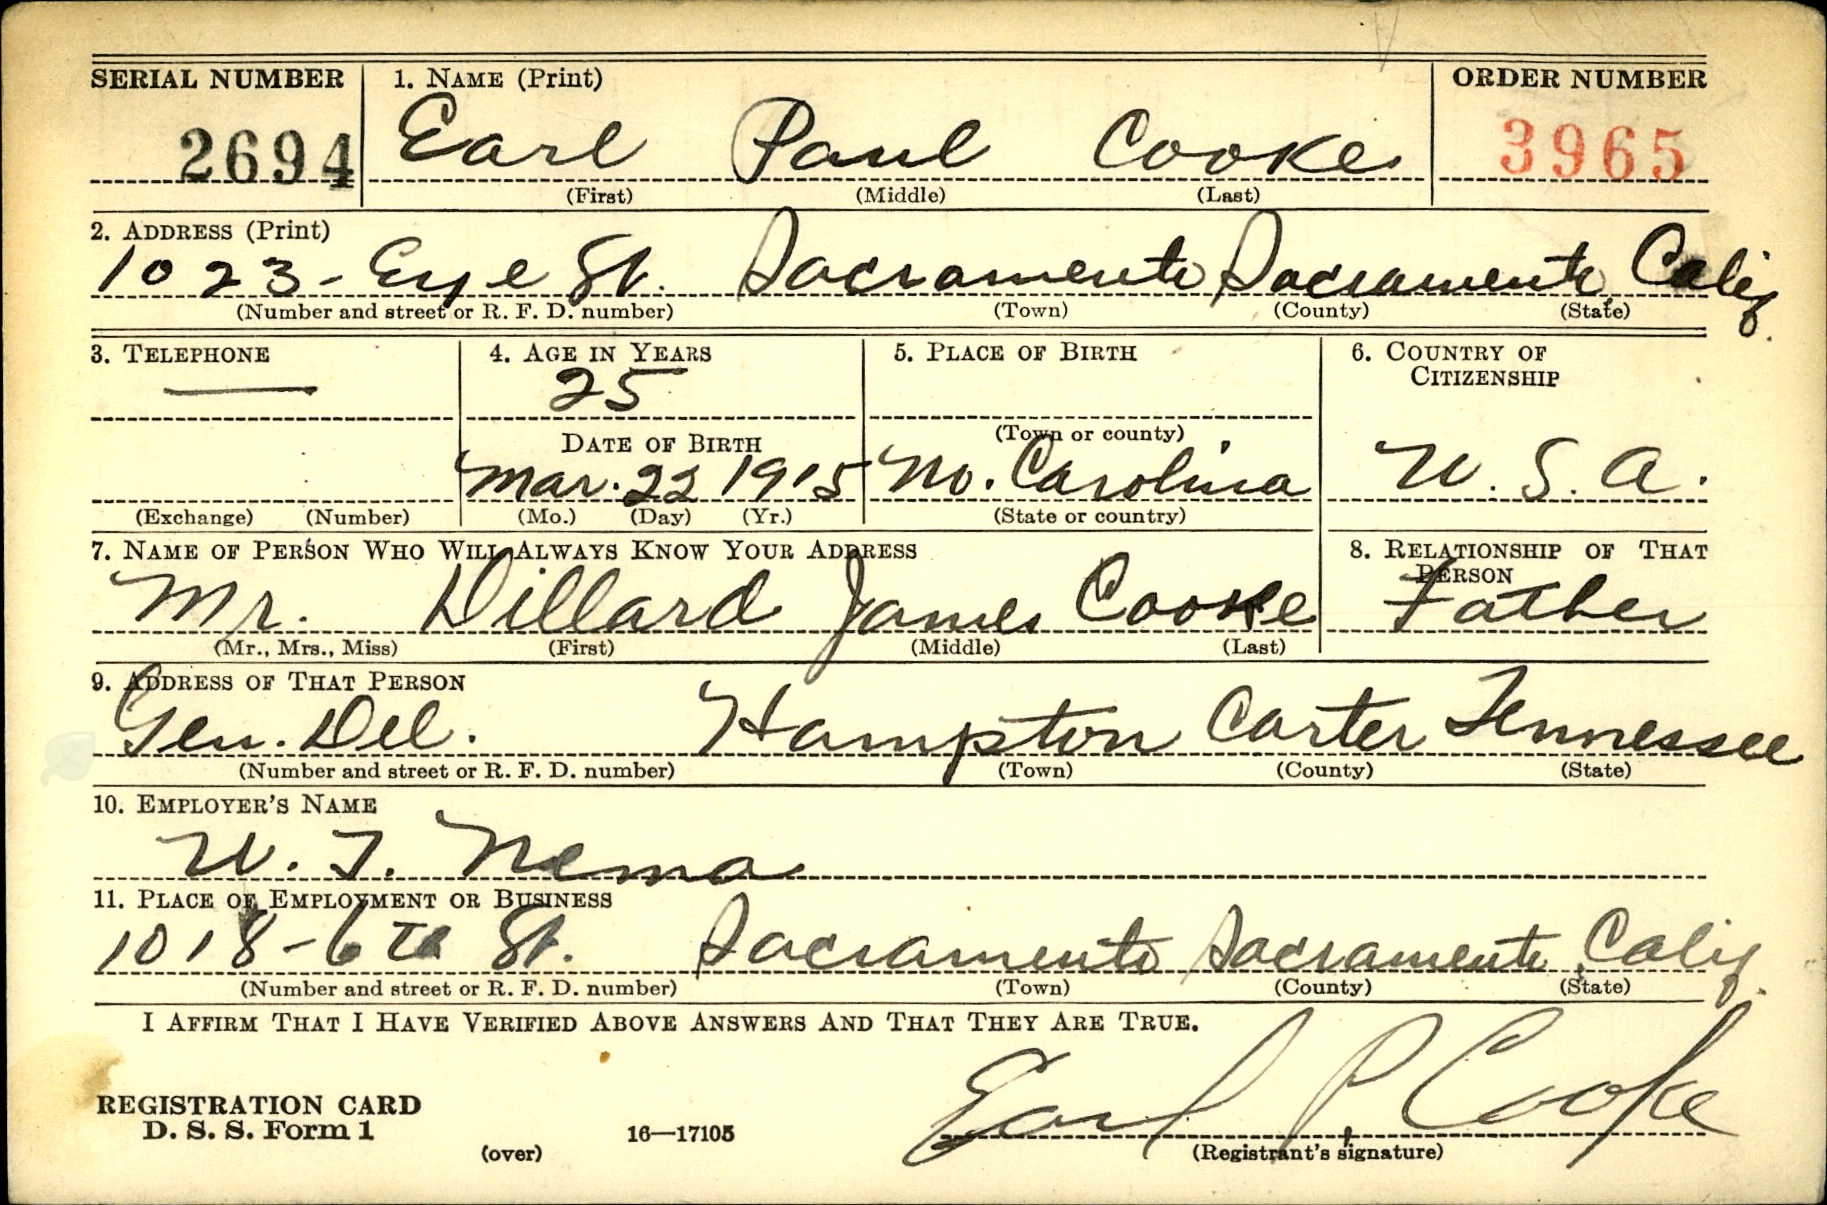 SERIAL NUMBER 1. NAME (Print) ORDER NUMBER
2694 Earl Paul Cooke 3965
(First) (Middle) (Last)
2. ADDRESS (Print)
1023 - Eye St. Sacramento Sacramento, Calif.
(Number and street or R. F. D. number) (Town) (County) (State)
3. TELEPHONE 4. AGE IN YEARS 5. PLACE OF BIRTH 6. COUNTRY OF
CITIZENSHIP
— 25
(Town or county)
DATE OF BIRTH
Mar. 22 1915 No. Carolina U. S. A.
(Exchange) (Number) (Mo.) (Day) (Yr.) (State or country)
7. NAME OF PERSON WHO WILL ALWAYS KNOW YOUR ADDRESS 8. RELATIONSHIP OF THAT
PERSON
Mr. Dillard James Cooke Father
(Mr., Mrs., Miss) (First) (Middle) (Last)
9. ADDRESS OF THAT PERSON
Gen. Del. Hampton Carter Tennessee
(Number and street or R. F. D. number) (Town) (County) (State)
10. EMPLOYER'S NAME
W. T. Nema
11. PLACE OF EMPLOYMENT OR BUSINESS
1018 - 6th St. Sacramento Sacramento, Calif.
(Number and street or R. F. D. number) (Town) (County) (State)
I AFFIRM THAT I HAVE VERIFIED ABOVE ANSWERS AND THAT THEY ARE TRUE.
Earl P. Cooke
REGISTRATION CARD
D. S. S. Form 1 16—17105
(over) (Registrant's signature)